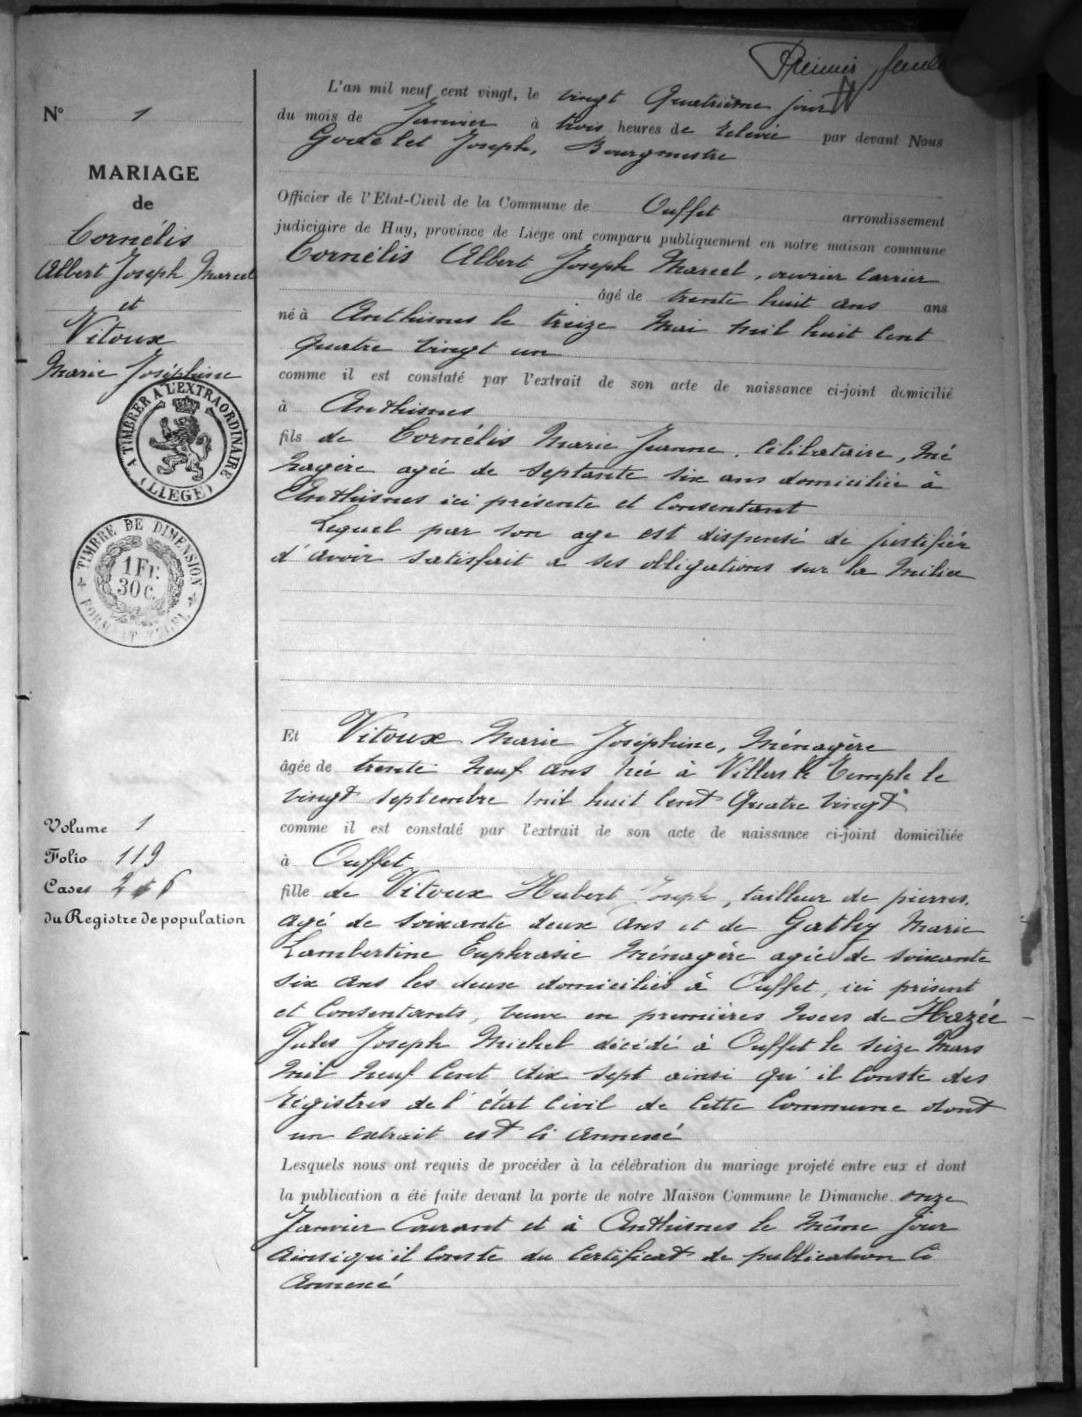 Premier feuil
N° 1
MARIAGE
de
Cornélis
Albert Joseph Marcel
et
Vitoux
Marie Joséphine
A TIMBRER A L'EXTRAORDINAIRE
(LIEGE)
TIMBRE DE DIMENSION
1 Fr.
30 C.
Volume 1
Folio 119
Cases 2 et 6
du Registre de population
L'an mil neuf cent vingt, le vingt Quatrième jour
du mois de Janvier à trois heures de relevée par devant Nous
Godelet Joseph, Bourgmestre
Officier de l'Etat-Civil de la Commune de Ouffet arrondissement
judiciaire de Huy, province de Liege ont comparu publiquement en notre maison commune
Cornélis Albert Joseph Marcel, ouvrier carrier
âgé de trente huit ans ans
né à Anthisnes le treize Mai mil huit cent
quatre vingt un
comme il est constaté par l'extrait de son acte de naissance ci-joint domicilié
à Anthisnes
fils de Cornélis Marie Jeanne, célibataire, mé
nagère agée de septante six ans domiciliée à
Anthisnes ici présente et consentant
Lequel par son age est dispensé de justifier
d'avoir satisfait à ses obligations sur la milice
Et Vitoux Marie Joséphine, ménagère
âgée de trente neuf ans née à Villers le Temple le
vingt septembre mil huit cent Quatre vingt
comme il est constaté par l'extrait de son acte de naissance ci-joint domiciliée
à Ouffet
fille de Vitoux Hubert Joseph, tailleur de pierres,
agé de soixante deux ans et de Gathy Marie
Lambertine Euphrasie ménagère agée de soixante
six ans les deux domiciliés à Ouffet, ici présent
et consentants, veuve en premières noces de Hazée
Jules Joseph Michel décédé à Ouffet le seize Mars
mil neuf cent dix sept ainsi qu'il conste des
registres de l'état civil de cette commune dont
un extrait est ci annexé
Lesquels nous ont requis de procéder à la célébration du mariage projeté entre eux et dont
la publication a été faite devant la porte de notre Maison Commune le Dimanche onze
Janvier Courant et à Anthisnes le même jour
ainsi qu'il conste du certificat de publication ci
annexé